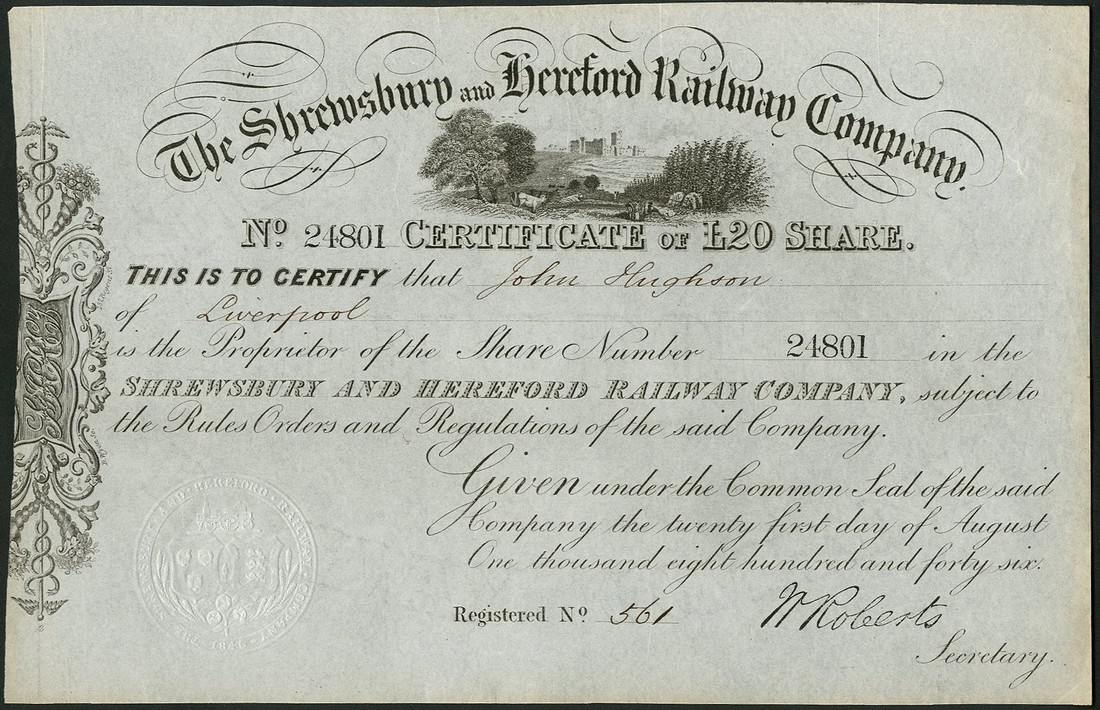 The Shrewsbury and Hereford Railway Company.
No. 24801 CERTIFICATE OF £20 SHARE.
THIS IS TO CERTIFY that John Hughson
of Liverpool
is the Proprietor of the Share Number 24801 in the
SHREWSBURY AND HEREFORD RAILWAY COMPANY, subject to
the Rules Orders and Regulations of the said Company.
Given under the Common Seal of the said
Company the twenty first day of August
One thousand eight hundred and forty six.
Registered No. 561
W Roberts
Secretary.
SHREWSBURY AND HEREFORD RAILWAY COMPANY
1846